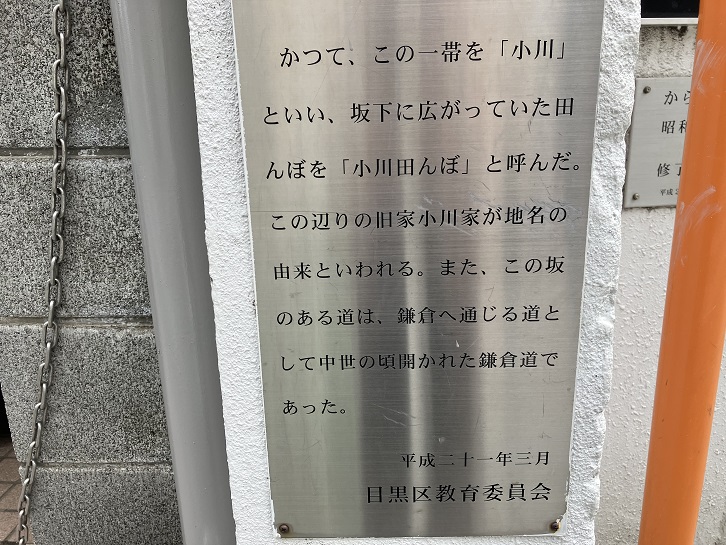 かつて、この一帯を「小川」
といい、坂下に広がっていた田
んぼを「小川田んぼ」と呼んだ。
この辺りの旧家小川家が地名の
由来といわれる。また、この坂
のある道は、鎌倉へ通じる道と
して中世の頃開かれた鎌倉道で
あった。
平成二十一年三月
目黒区教育委員会
から
昭和
修了
平成